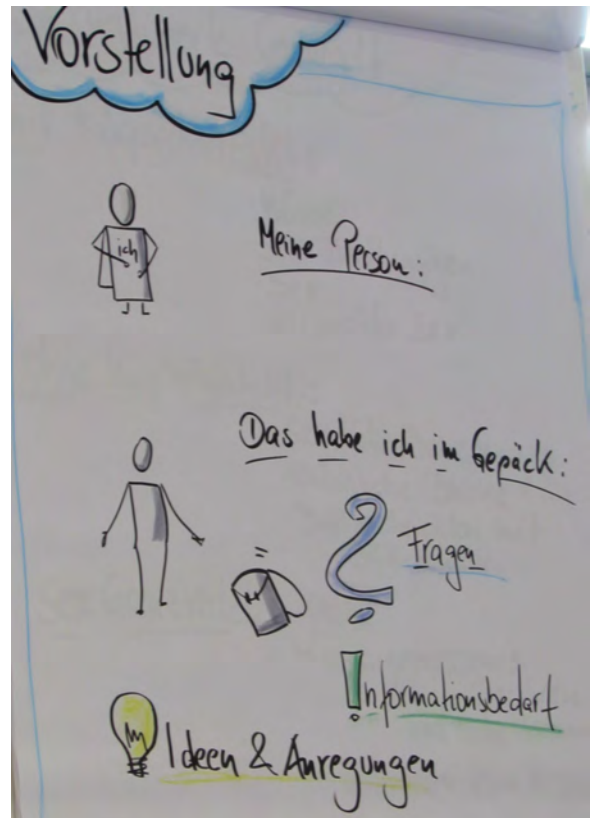 Vorstellung
ich
Meine Person:
Das habe ich im Gepäck:
Fragen
Informationsbedarf
Ideen & Anregungen